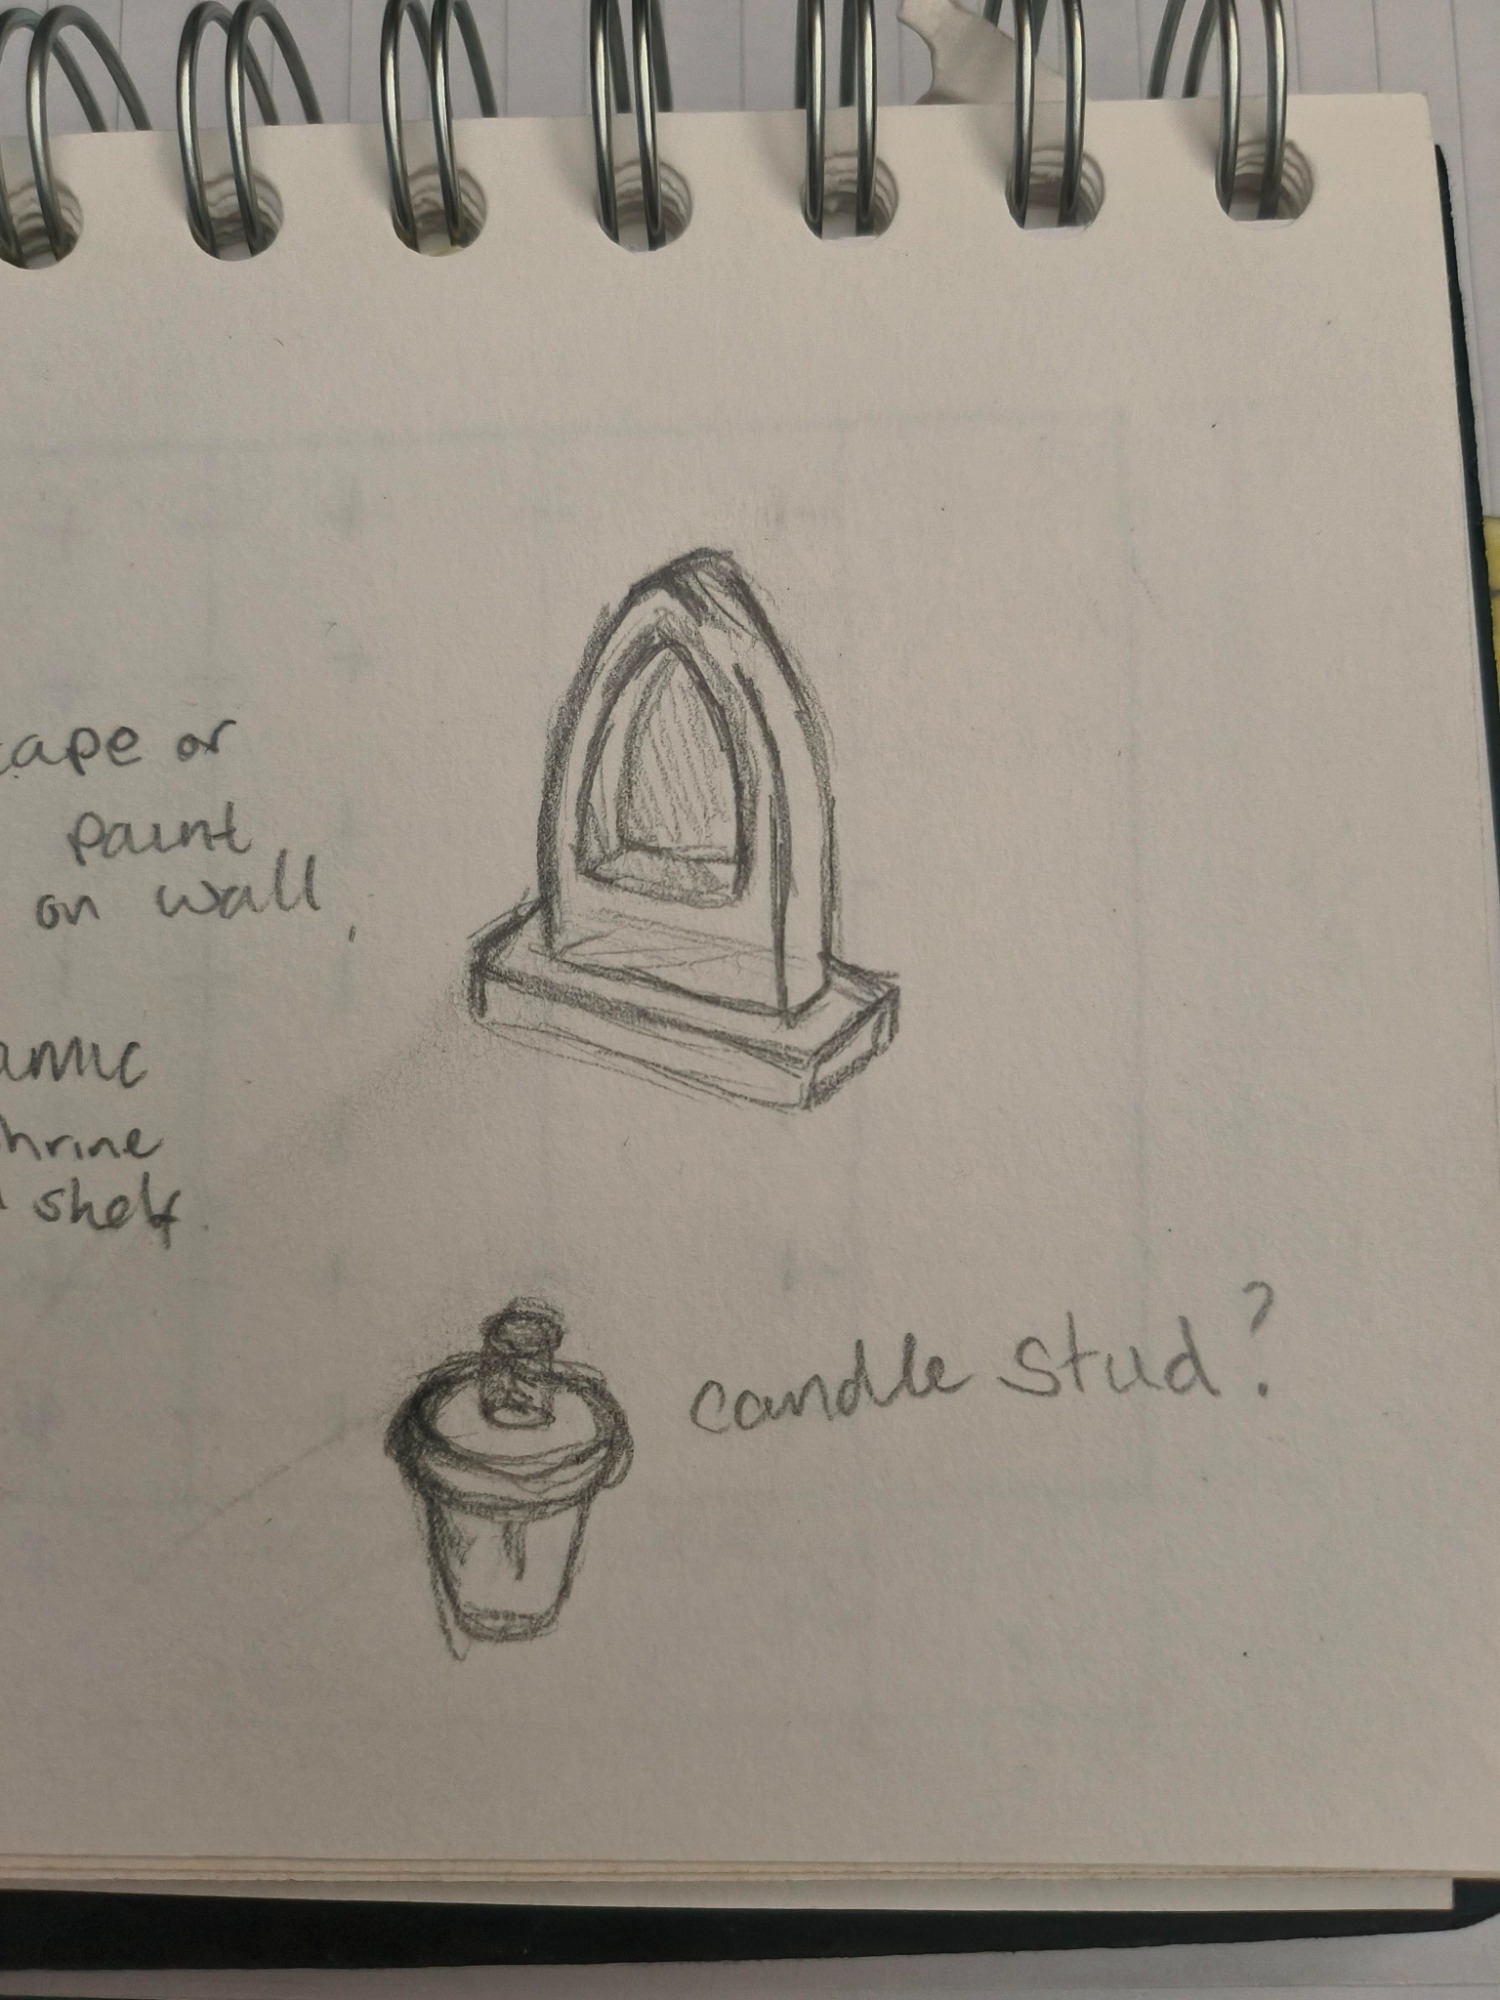 cape or
paint
on wall,
amic
hrine
shelf.
candle stud?